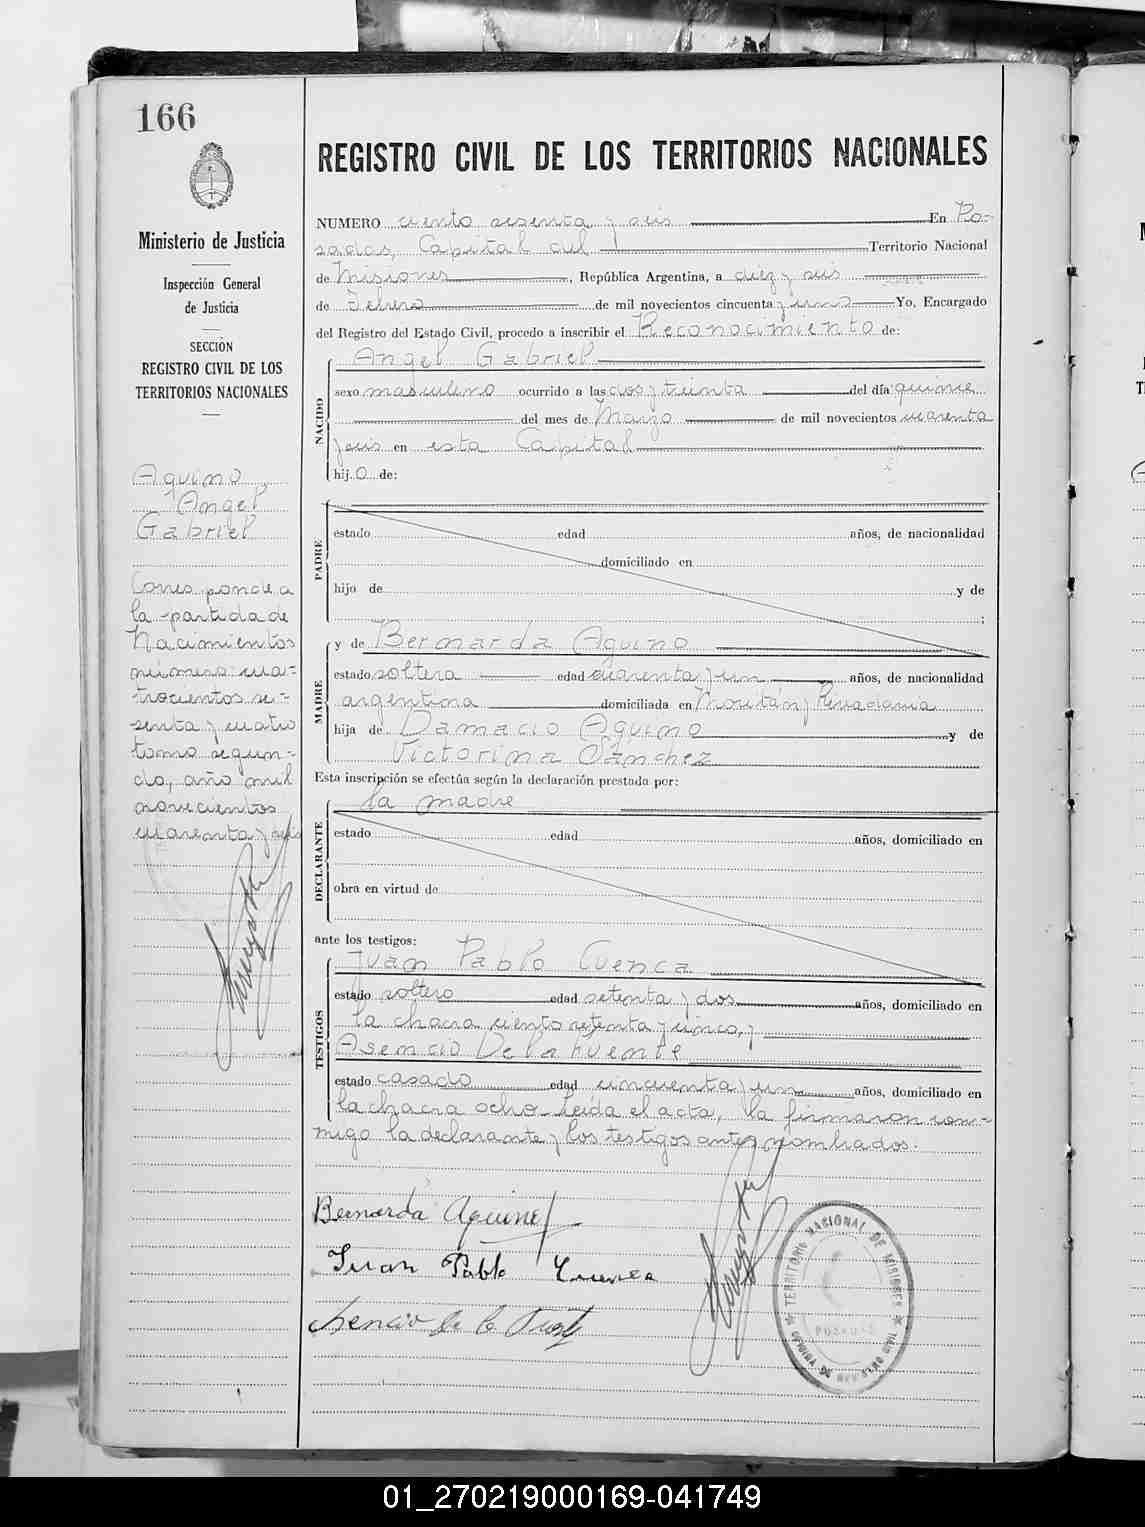 166
Ministerio de Justicia
Inspección General
de Justicia
SECCIÓN
REGISTRO CIVIL DE LOS
TERRITORIOS NACIONALES
Aquino
Angel
Gabriel
Corresponde a
la partida de
Nacimientos
número cua-
trocientos se-
senta y cuatro
tomo segun-
do, año mil
novecientos
cuarenta y seis
REGISTRO CIVIL DE LOS TERRITORIOS NACIONALES
NUMERO ciento sesenta y seis En Po-
sadas, Capital del Territorio Nacional
de Misiones, República Argentina, a diez y seis
de Febrero de mil novecientos cincuenta y uno Yo, Encargado
del Registro del Estado Civil, procedo a inscribir el Reconocimiento de:
NACIDO
Angel Gabriel
sexo masculino ocurrido a las dos y treinta del día quince
del mes de Marzo de mil novecientos cuarenta
y seis en esta Capital
hijo de:
PADRE
estado edad años, de nacionalidad
domiciliado en
hijo de y de
;
MADRE
y de Bernarda Aquino
estado soltera edad cuarenta y un años, de nacionalidad
argentina domiciliada en Moritán y Rivadavia
hija de Damacio Aquino y de
Victorina Sánchez
Esta inscripción se efectúa según la declaración prestada por:
DECLARANTE
la madre
estado edad años, domiciliado en
obra en virtud de
ante los testigos:
TESTIGOS
Juan Pablo Cuenca
estado soltero edad setenta y dos años, domiciliado en
la chacra ciento setenta y cinco, y
Asencio De la Fuente
estado casado edad cincuenta y un años, domiciliado en
la chacra ocho. Leida el acta, la firmaron con-
migo la declarante y los testigos antes nombrados.
Bernarda Aquino
Juan Pablo Cuenca
Asencio de la Fuente
TERRITORIO NACIONAL DE MISIONES
POSADAS
01_270219000169-041749